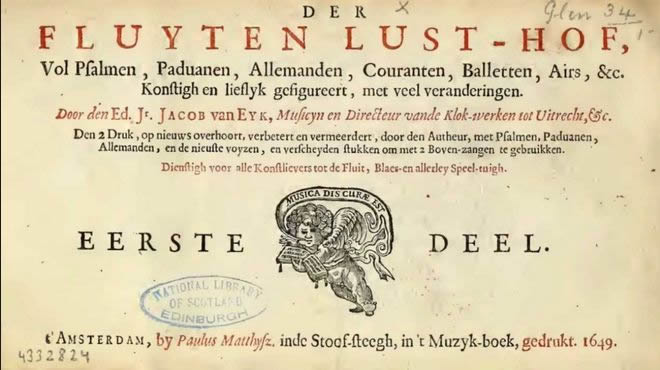 DER
Glen 34
FLUYTEN LUST-HOF,
Vol Pſalmen, Paduanen, Allemanden, Couranten, Balletten, Airs, &c.
Konſtigh en lieflyk gefigureert, met veel veranderingen.
Door den Ed. Jr. JACOB van EYK, Muſicyn en Directeur vande Klok-werken tot Uitrecht, &c.
Den 2 Druk, op nieuws overhoort, verbetert en vermeerdert, door den Autheur, met Pſalmen, Paduanen,
Allemanden, en de nieuſte voyzen, en verſcheyden ſtukken om met 2 Boven-zangen te gebruikken.
Dienſtigh voor alle Konſtlievers tot de Fluit, Blaes- en allerley Speel-tuigh.
MUSICA DIS CURÆ EST
EERSTE DEEL.
NATIONAL LIBRARY
OF SCOTLAND
EDINBURGH
t'AMSTERDAM, by Paulus Matthyſz. inde Stoof-ſteegh, in 't Muzyk-boek, gedrukt. 1649.
4332824